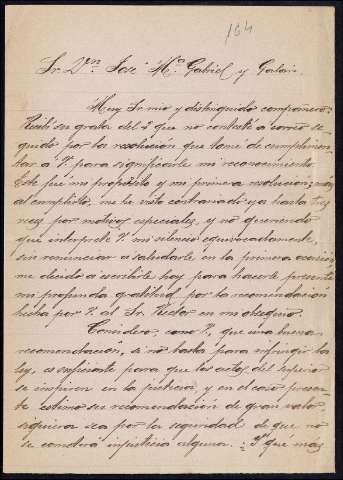 164
Sr. Dn. José Mª Gabriel y Galán.
Muy Sr. mio y distinguido compañero:
Recibí su grata del 2 que no contesté a correo se-
guido por la resolución que tomé de cumplimen-
tar a V. para significarle mi reconocimiento.
Este fué mi propósito y mi primera resolución; mas
al cumplirlo, me he visto contrariado ya hasta tres
veces por motivos especiales, y no queriendo
que interprete V. mi silencio equivocadamente,
sin renunciar a saludarle en la primera ocasión
me decido a escribirle hoy para hacerle presente
mi profunda gratitud por la recomendación
hecha por V. al Sr. Rector en mi obsequio.
Considero, como V., que una buena
recomendación, si no basta para infringir la
ley, es suficiente para que los actos del superior
se inspiren en la justicia, y en el caso presen-
te estimo su recomendación de gran valor
siquiera sea por la seguridad de que no
se cometerá injusticia alguna. Y qué más